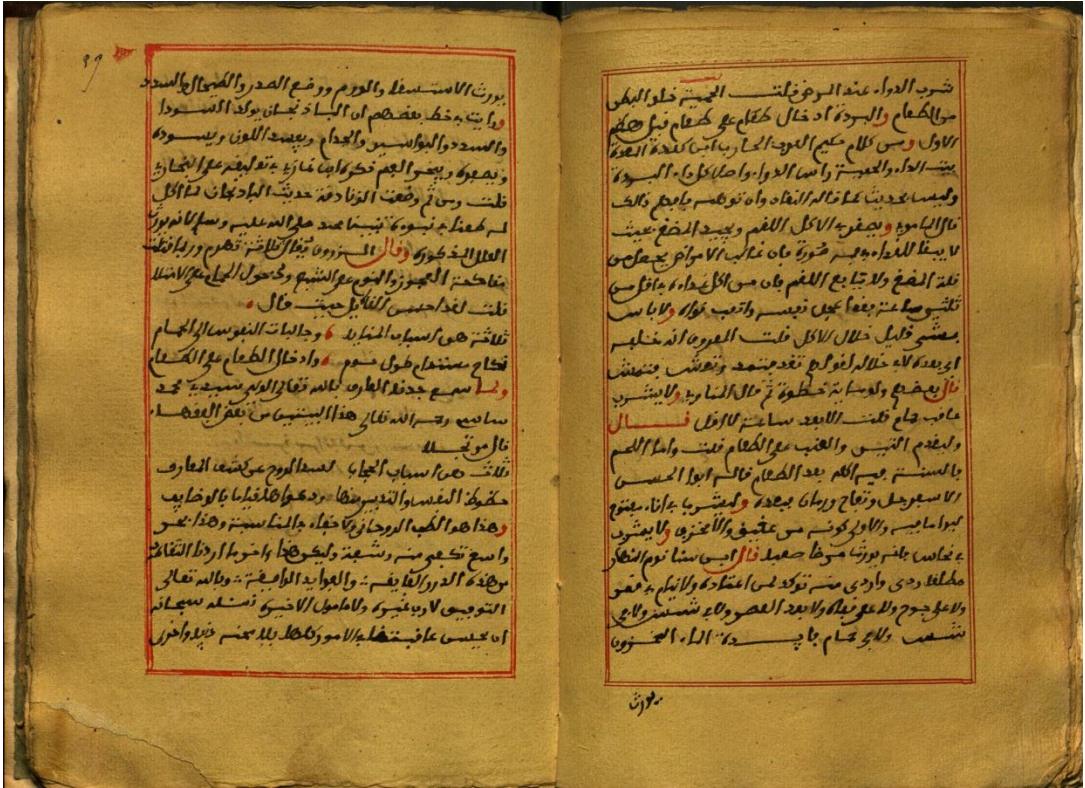 شرب الدواء عند المرض قلت الحمية خلو البطن
من الطعام والبردة ادخال طعام على طعام قبل هضم
الاول ومن كلام حكيم العرب الحارث ابن كلدة المعدة
بيت الداء والحمية راس الدواء واصل كل داء البردة
وليس بحديث كما قاله النقاد وان توهمه بعضهم ذالك
قال الباموي ويصغر الاكل اللقم ويجيد المضغ بحيث
لا يبقا للغذاء فيه صورة فان غالب الامراض يحصل من
قلة المضغ ولا يتابع اللقم فان من اكل غذاءه في اقل من
ثلثي ساعة فقد عجل نفسه واتعب قواه ولا باس
بمشي قليل خلال الاكل قلت المعروف انه خلفه
اي بعده لا خلاله لقولهم تغد وتمد وتعش وتمش
قال بعضهم ولو مائة خطوة ثم قال المناوي ولا يشرب
عقب طعام قلت الا بعد ساعة لا اقل قال
وليقدم التين والعنب على الطعام قلت واما اللحم
فالسنة فيه اكله بعد الطعام قاله ابوا الحسن
الا سفرجل وتفاح ورمان فبعده وليشرب في اناء مفتوح
ليرا ما فيه والاولى كونه من عقيق والا فخزف ولا يشرب
في نحاس فانه يورث مرضا صعبا قال ابن سينا نوم النهار
مطلقا ردي واردى منه تركه لمن اعتاده ولا ينام في قمر
ولا على جوع ولا على قفاه ولا بعد العصر ولا في شمس ولا في
شمس ولا في حمام فايدة الماء المخزون
يورث
39
يورث الاستسقا والورم ووجع الصدر والطحال والسدد
ورايت بخط بعضهم ان الباذنجان يولد السودا
والسدد والبواسير والجذام ويفسد اللون ويسوده
ويصفره ويبخر الفم ذكره ابن غازي في تعليقه على البخاري
قلت ومن ثم وضعت الزنادقة حديث الباذنجان لما اكل
له طعنا في نبوة نبينا محمد صلى الله عليه وسلم لانه يورث
العلل المذكورة وقال السزروق يقال ثلاثة تهرم وربما قتلت
مجامعة العجوز والنوم على الشبع ودخول الحمام على الامتلاء
قلت لقد احسن القايل حيث قال
ثلاثة هن اسباب المنايا وجالبات النفوس الى الحمام
نكاح مستدام طول نوم وادخال الطعام على الطعام
ولما سمع جدنا العارف بالله تعالى الولي سيدي محمد
سالم رحمه الله تعالى هذا البيتين من بعض الفقهاء
قال مرتجلا
ثلاث هن اسباب الحجاب لسد الروح عن كشف المعارف
حظوظ النفس والتدبير منها ودعواها قياما بالوظايف
وهذا هو الطب الروحاني ولا خفاء في المناسبة وهذا بحر
واسع تكفي منه رشفة وليكن هذا واخر ما اردنا التقاطه
من هذه الدرر الفايقة والفوايد الرايقة وبالله تعالى
التوفيق لا رب غيره ولا مامول الا خيره نسئله سبحانه
ان يحسن عاقبتنا في الامور كلها بلا محنة